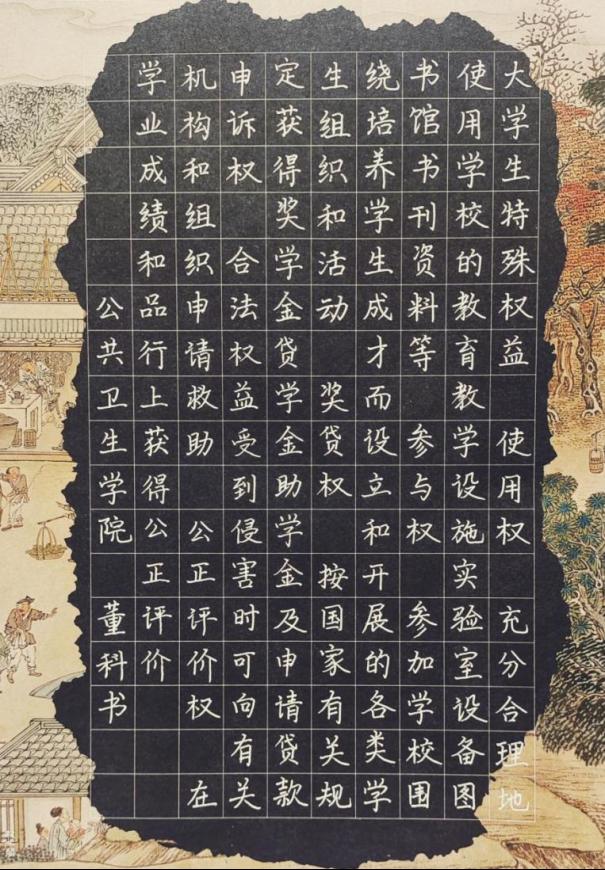 大学生特殊权益 使用权 充分合理地
使用学校的教育教学设施实验室设备图
书馆书刊资料等 参与权 参加学校围
绕培养学生成才而设立和开展的各类学
生组织和活动 奖贷权 按国家有关规
定获得奖学金贷学金助学金及申请贷款
申诉权 合法权益受到侵害时可向有关
机构和组织申请救助 公正评价权 在
学业成绩和品行上获得公正评价
公共卫生学院 董科书